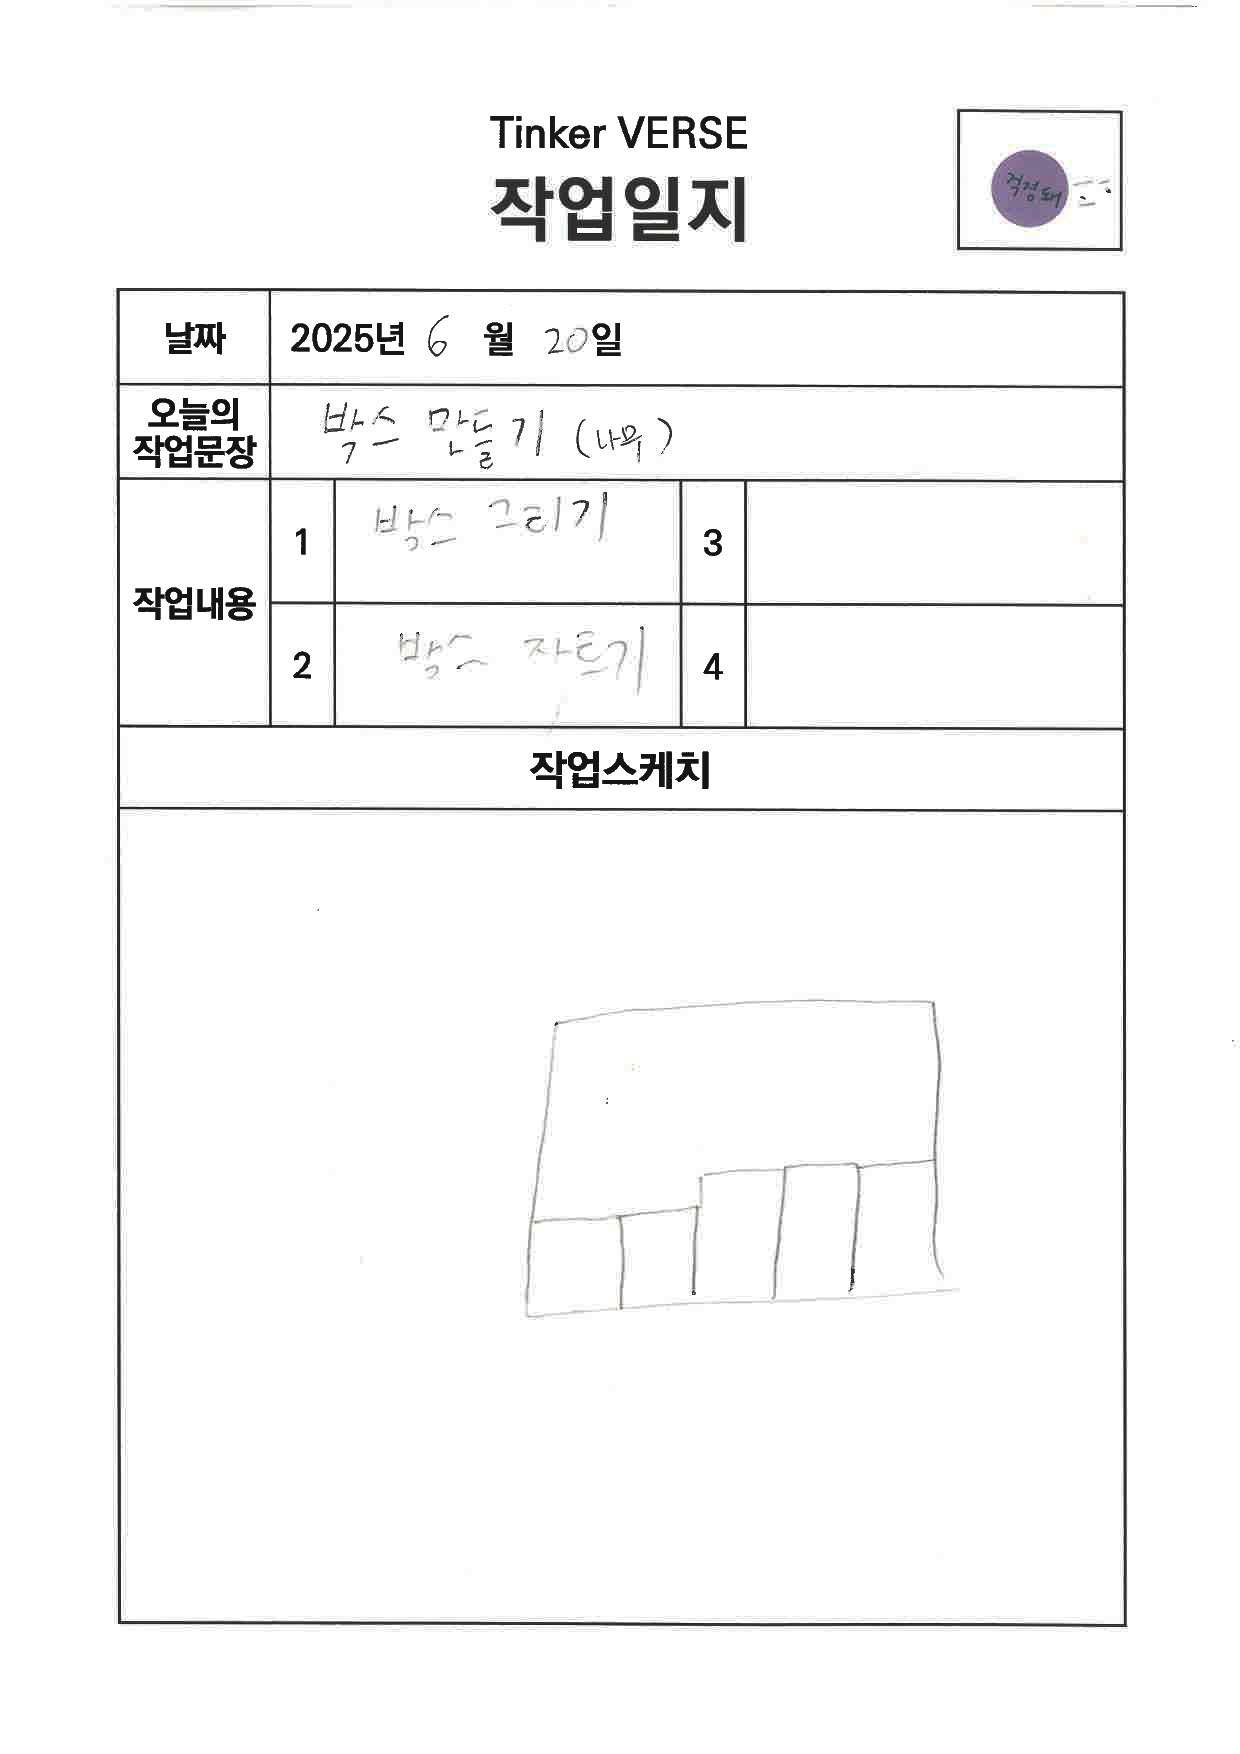 Tinker VERSE
작업일지
걱정돼
날짜
2025년 6월 20일
오늘의
작업문장
박스 만들기 (나무)
작업내용
1
박스 그리기
3
2
박스 자르기
4
작업스케치